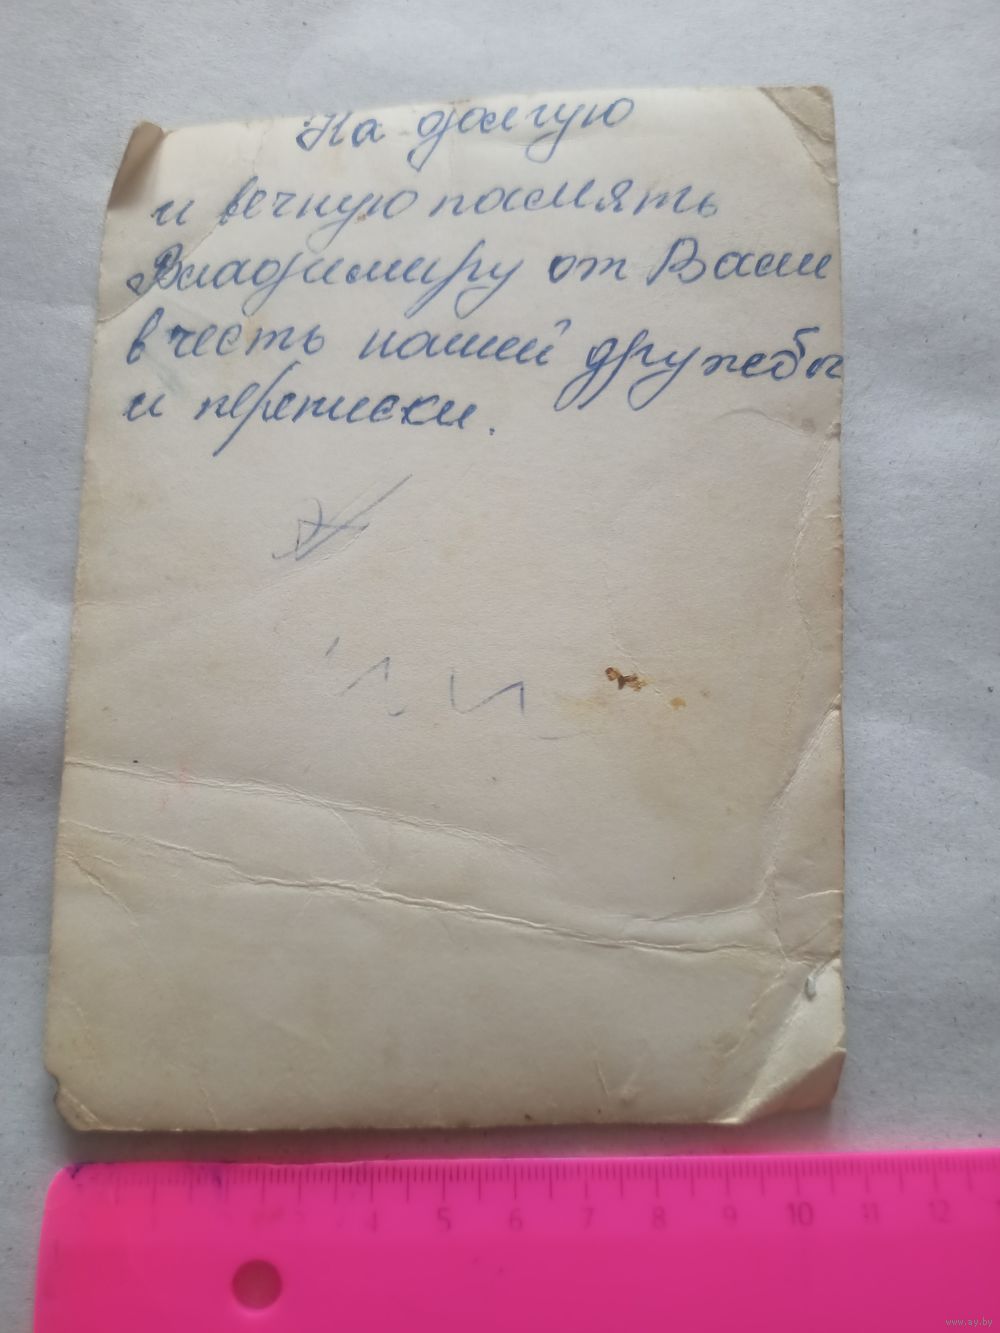 На долгую
и вечную память
Владимиру от Васи
в честь нашей дружбы
и переписки.
4 5 6 7 8 9 10 11 12
www.ay.by